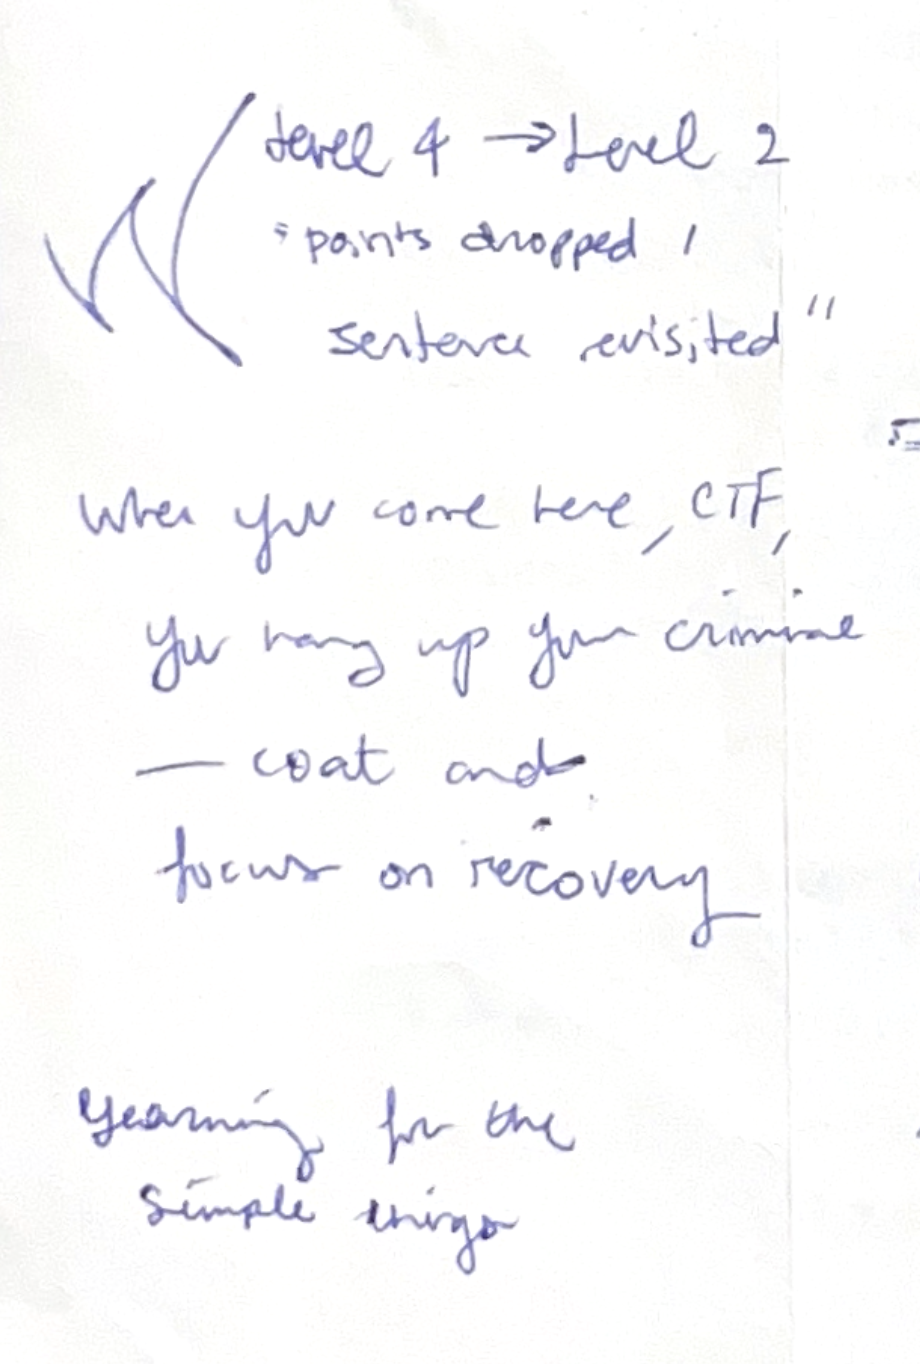 Level 4 → Level 2
"points dropped,
sentence revisited"
When you come here, CTF,
you hang up your criminal
— coat and
focus on recovery
Yearning for the
simple things